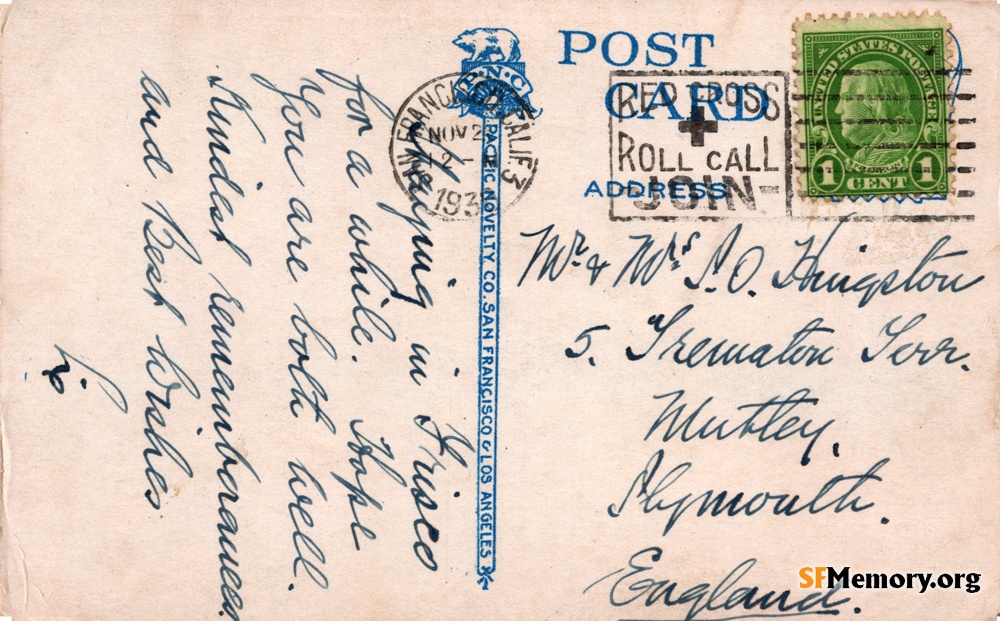 Staying in Frisco
for a while. Hope
you are both well.
Kindest remembrances
and Best Wishes
POST
CARD
ADDRESS
P.N.C.
PACIFIC NOVELTY CO. SAN FRANCISCO & LOS ANGELES
SAN FRANCISCO, CALIF. 3
NOV 2
12 - M
193
RED CROSS
ROLL CALL
- JOIN -
UNITED STATES POSTAGE
1 CENT 1
Mr. & Mrs S. O. Kingston
5. Trematon Terr.
Mutley,
Plymouth.
England.
SFMemory.org